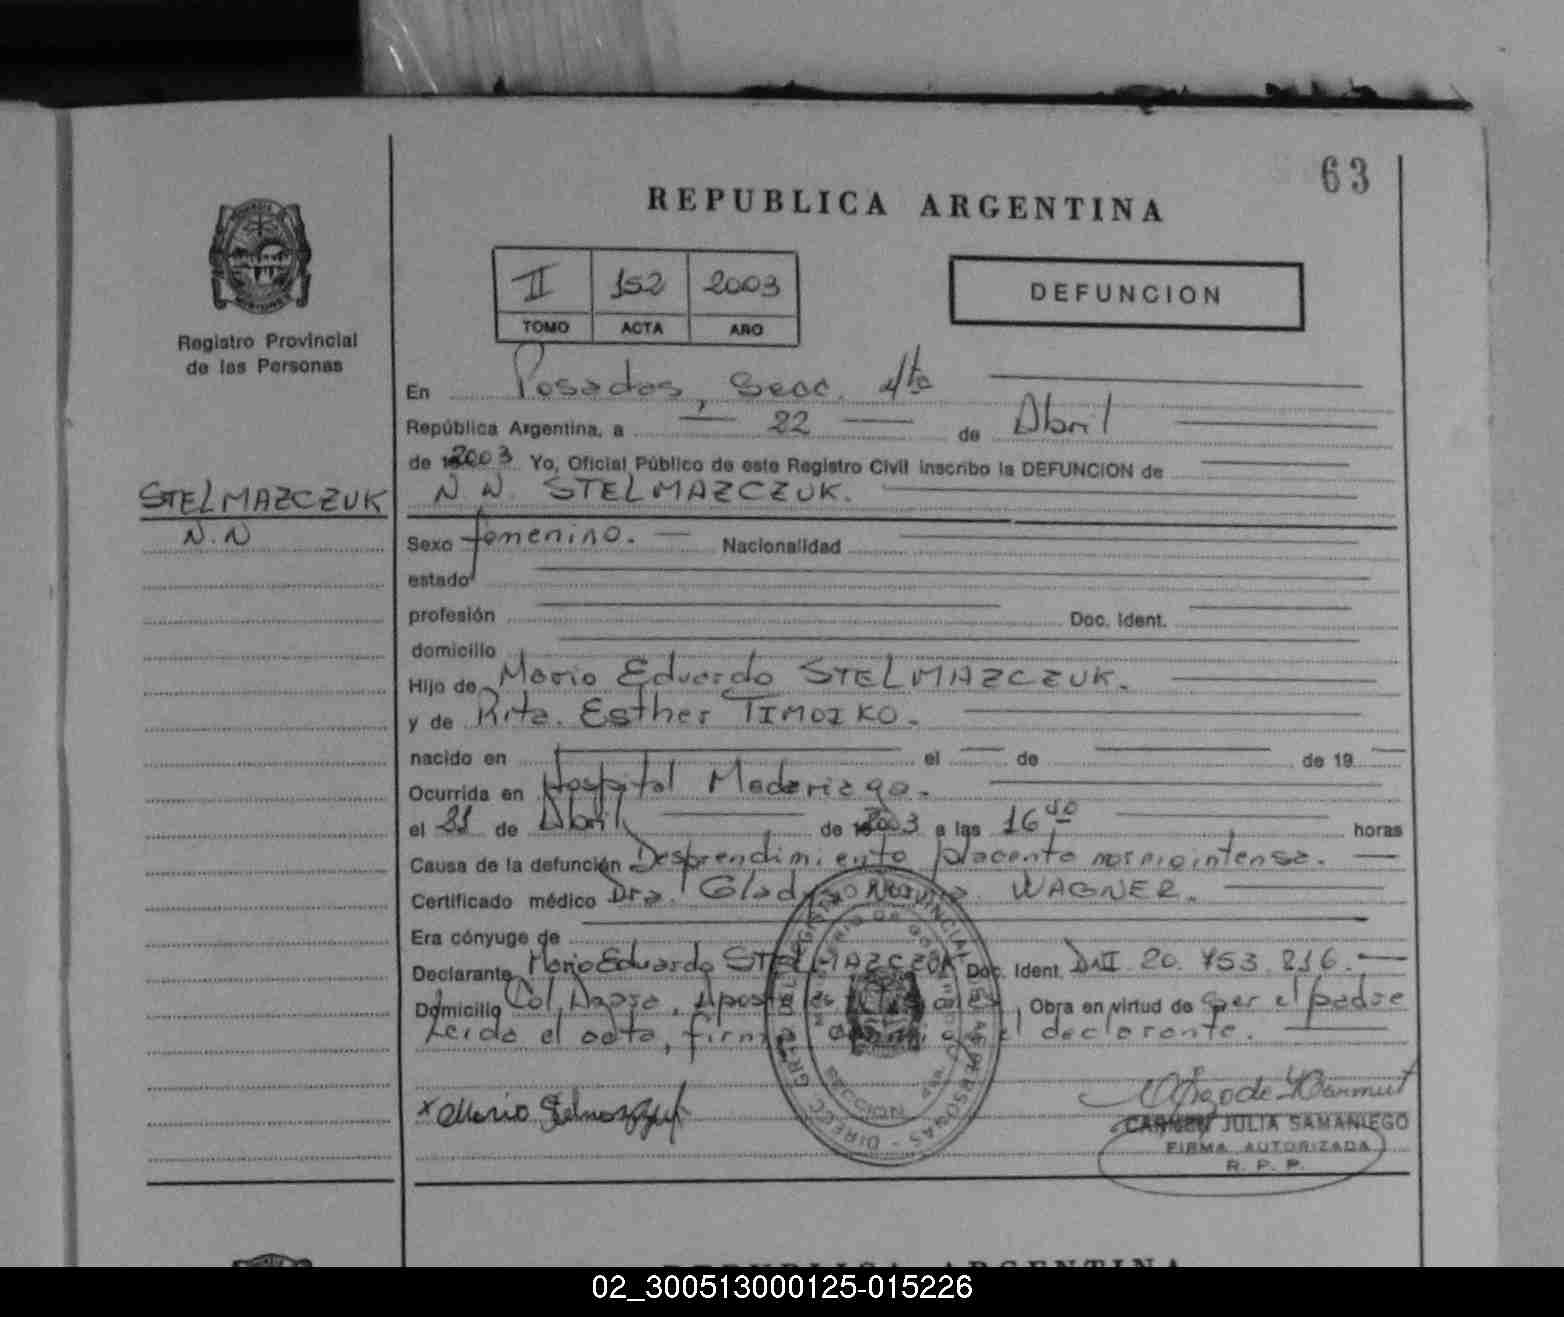 63
REPUBLICA ARGENTINA
II 152 2003
TOMO ACTA AÑO
DEFUNCION
Registro Provincial
de las Personas
En Posadas, Secc. 4ta
República Argentina, a 22 de Abril
de 2003 Yo, Oficial Público de este Registro Civil inscribo la DEFUNCION de
STELMAZCZUK
N.N
N.N. STELMAZCZUK.
Sexo femenino. Nacionalidad
estado
profesión Doc. Ident.
domicilio
Hijo de Mario Eduardo STELMAZCZUK.
y de Rita Esther TIMOIKO.
nacido en el de de 19
Ocurrida en Hospital Madariaga.
el 21 de Abril de 2003 a las 16 horas
Causa de la defunción Desprendimiento placenta normointensa.
Certificado médico Dra. WAGNER.
Era cónyuge de
Declarante Mario Eduardo STELMAZCZUK Doc. Ident. DNI 20.753.216.
Domicilio Col. Obra en virtud de Ser el padre
Leida el acta, firma el declarante.
x Mario
CARMEN JULIA SAMANIEGO
FIRMA AUTORIZADA
R. P. P.
REPUBLICA ARGENTINA
02_300513000125-015226